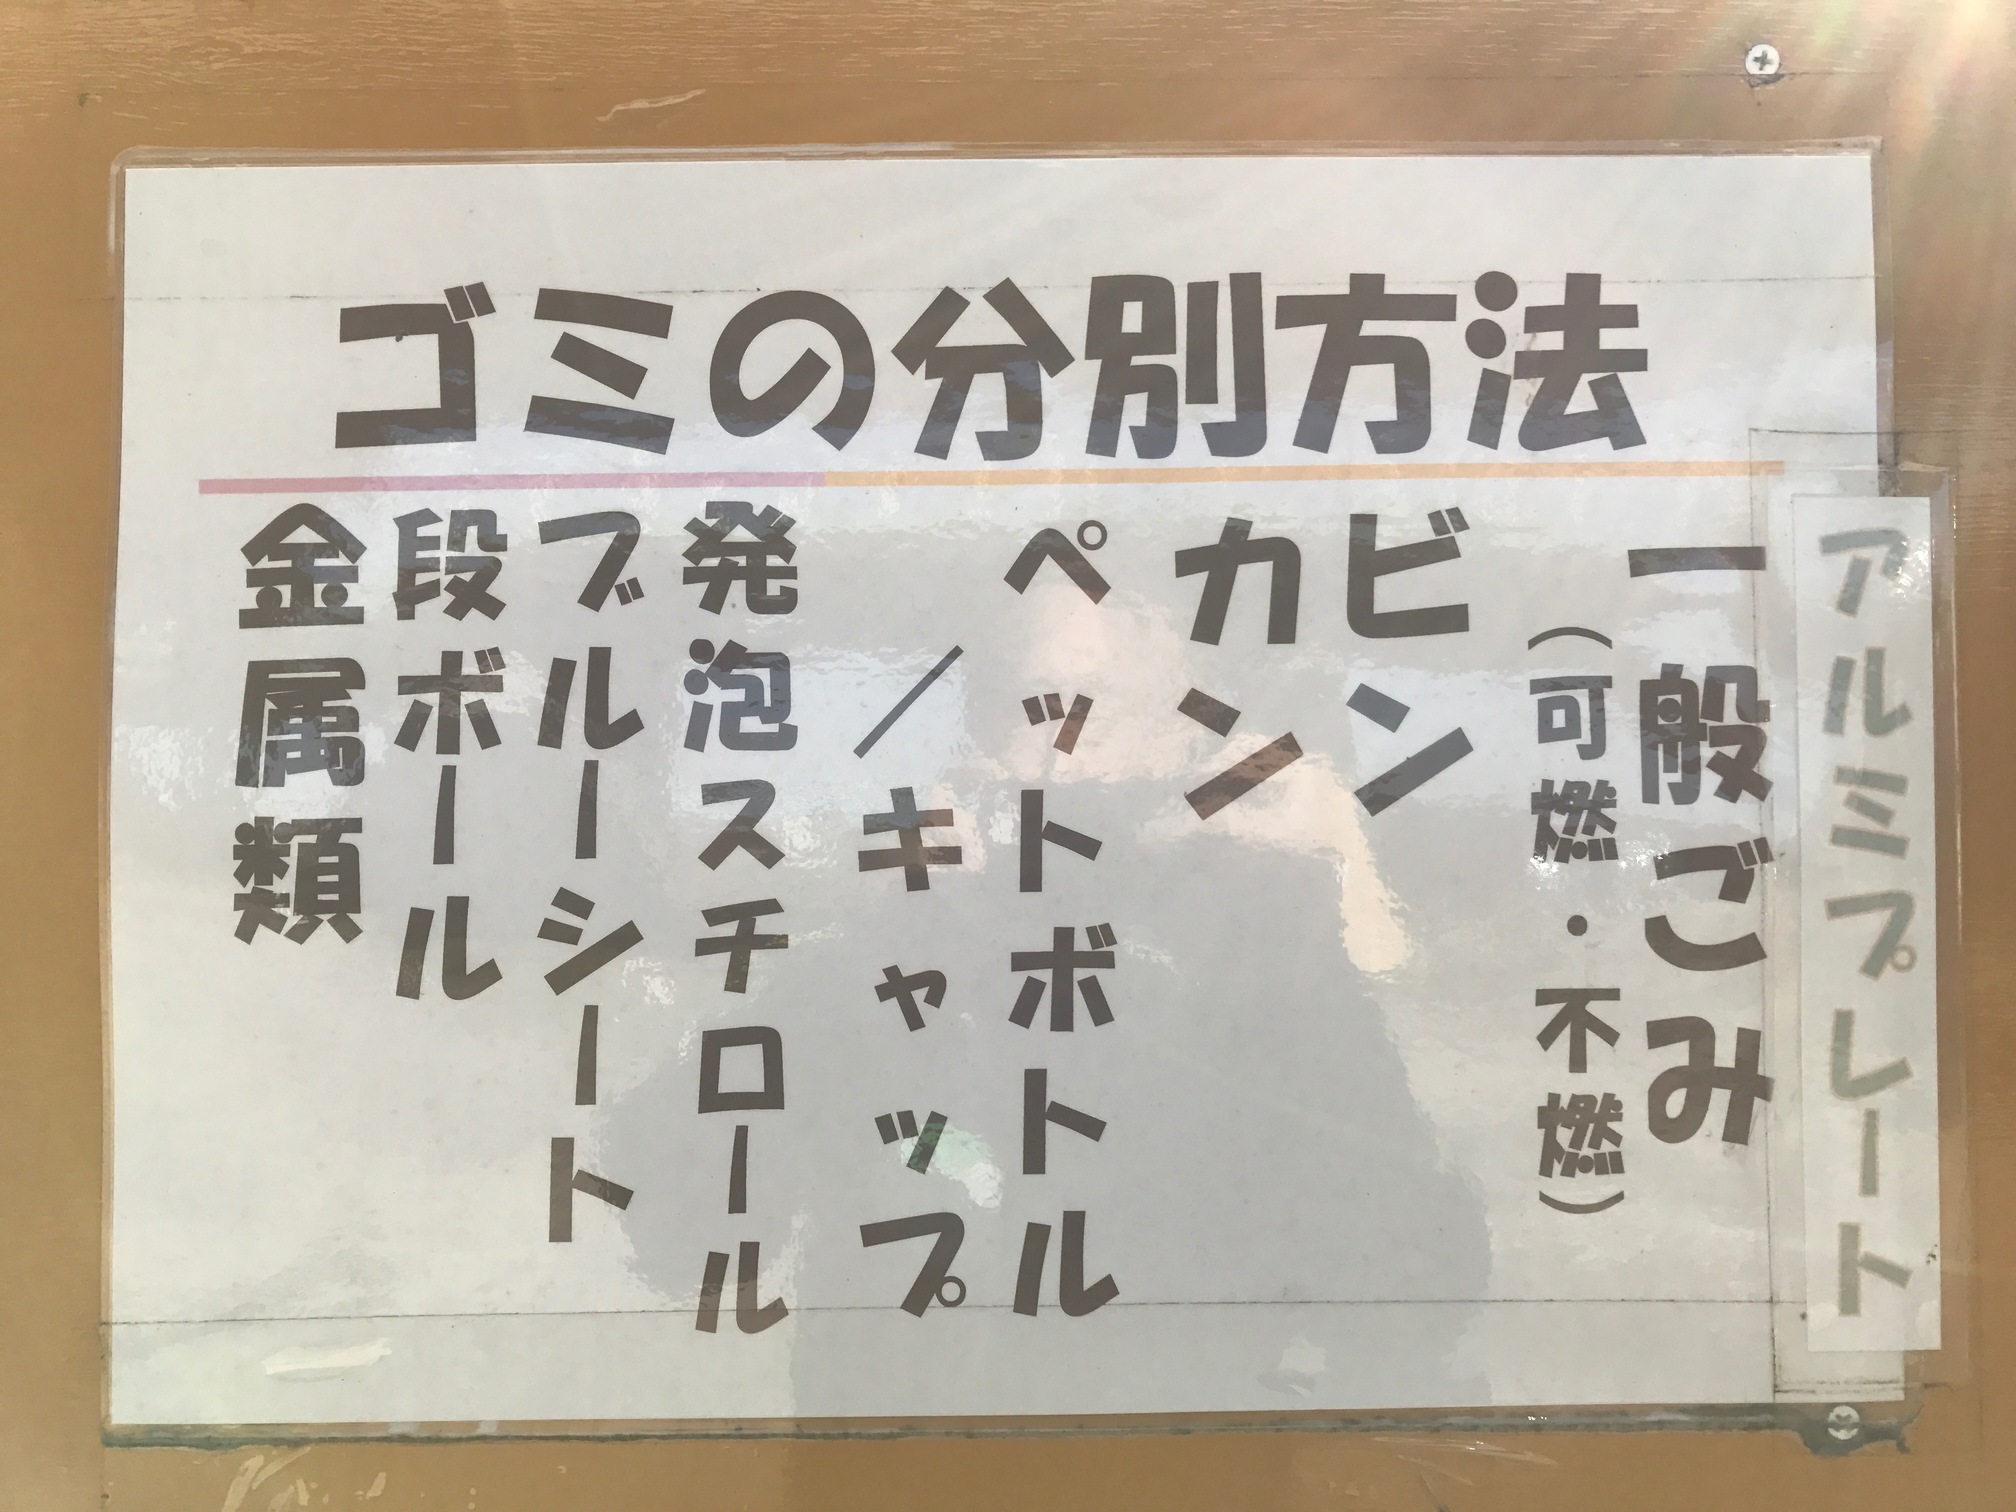 ゴミの分別方法
アルミプレート
一般ごみ
（可燃・不燃）
ビン
カン
ペットボトル
／キャップ
発泡スチロール
ブルーシート
段ボール
金属類